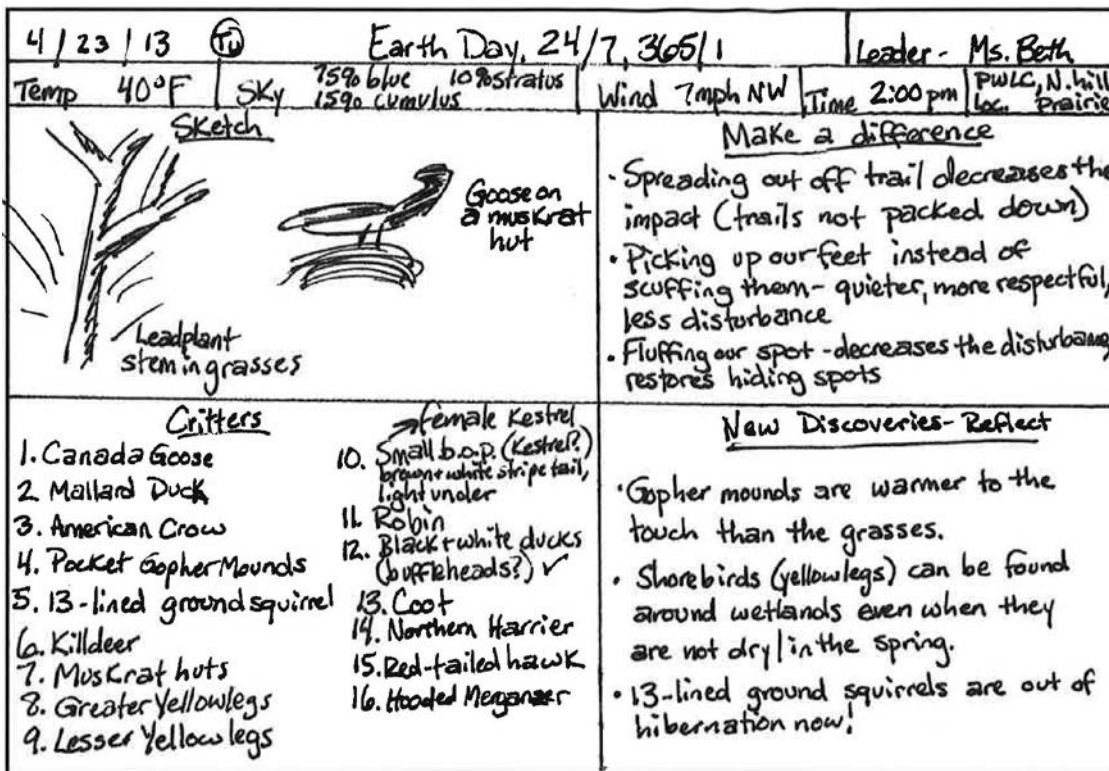 4/23/13 Tu Earth Day, 24/7, 365/1 Leader - Ms. Beth
Temp 40°F Sky 75% blue 10% stratus
15% cumulus
Wind 7mph NW Time 2:00 pm PWLC, N. hill
loc. Prairie
Sketch
Goose on
a muskrat
hut
Leadplant
stem in grasses
Make a difference
• Spreading out off trail decreases the
impact (trails not packed down)
• Picking up our feet instead of
scuffing them - quieter, more respectful,
less disturbance
• Fluffing our spot - decreases the disturbance,
restores hiding spots
Critters
1. Canada Goose
2. Mallard Duck
3. American Crow
4. Pocket Gopher Mounds
5. 13-lined ground squirrel
6. Killdeer
7. Muskrat huts
8. Greater Yellowlegs
9. Lesser Yellowlegs
→ female Kestrel
10. Small b.o.p. (Kestrel?)
brown + white stripe tail,
light under
11. Robin
12. Black + white ducks
(buffleheads?) ✓
13. Coot
14. Northern Harrier
15. Red-tailed hawk
16. Hooded Merganser
New Discoveries - Reflect
• Gopher mounds are warmer to the
touch than the grasses.
• Shorebirds (yellowlegs) can be found
around wetlands even when they
are not dry/in the spring.
• 13-lined ground squirrels are out of
hibernation now!